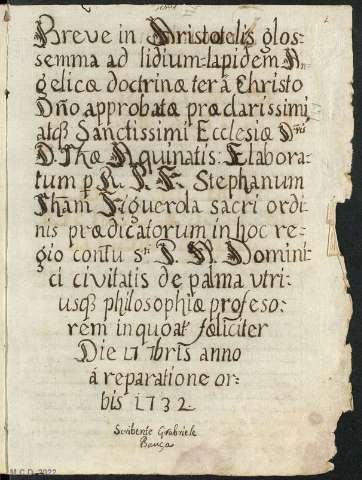 Breve in Aristotelis glos-
semma ad lidium-lapidem An-
gelicæ doctrinæ ter á Christo
Dño approbatæ præclarissimi
atq3 Sanctissimi Ecclesiæ Dris
D. Thæ Aquinatis: Elabora-
tum p R. P. F. Stephanum
Jhañ Figuerola sacri ordi-
nis prædicatorum in hoc re-
gio contu Sti P. N. Domini-
ci civitatis de palma utri-
usq3 philosophiæ profeso-
rem inquoat fæliciter
Die 17 7bris anno
á reparatione or-
bis 1732
Scribente Grabriele
Bauça
M.C.D. 2022